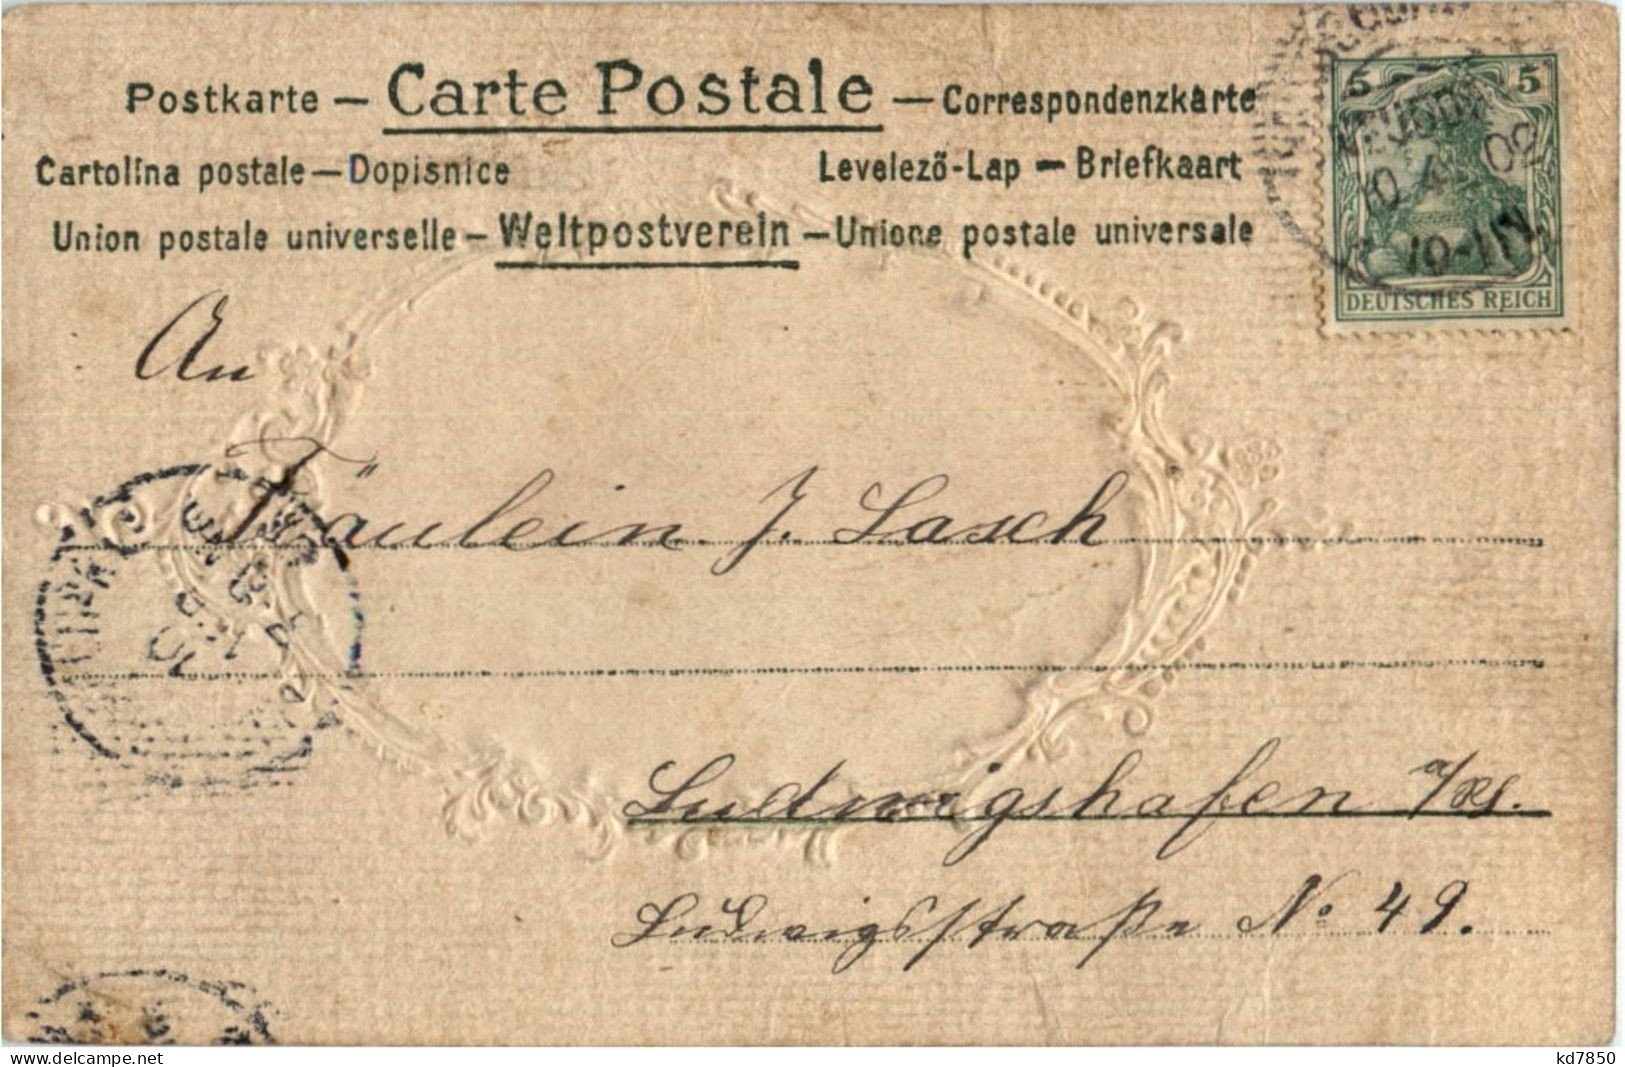 Postkarte – Carte Postale – Correspondenzkarte
Cartolina postale – Dopisnice Levelező-Lap – Briefkaart
Union postale universelle – Weltpostverein – Unione postale universale
5 5
10-11
DEUTSCHES REICH
An
Fräulein J. Lasch
Ludwigshafen a/Rh.
Ludwigsstraße No 49.
www.delcampe.net
kd7850